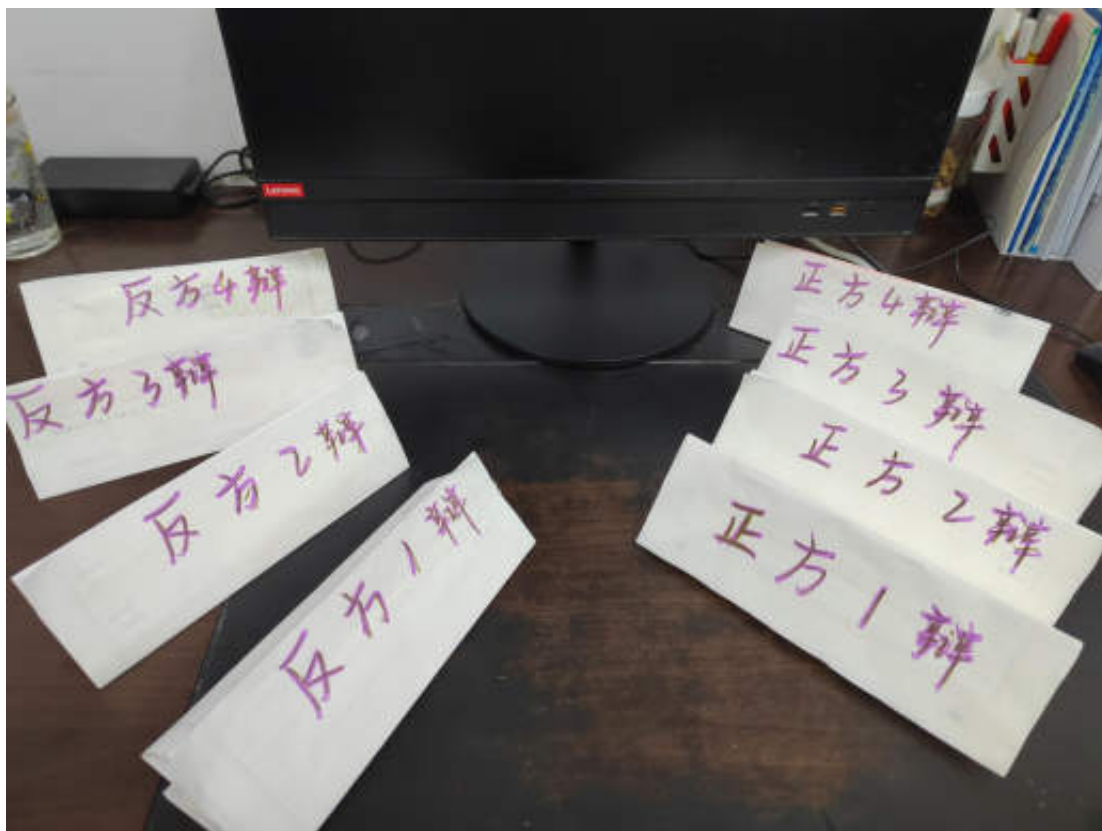 Lenovo
反方4辩
反方3辩
反方2辩
反方1辩
正方4辩
正方3辩
正方2辩
正方1辩